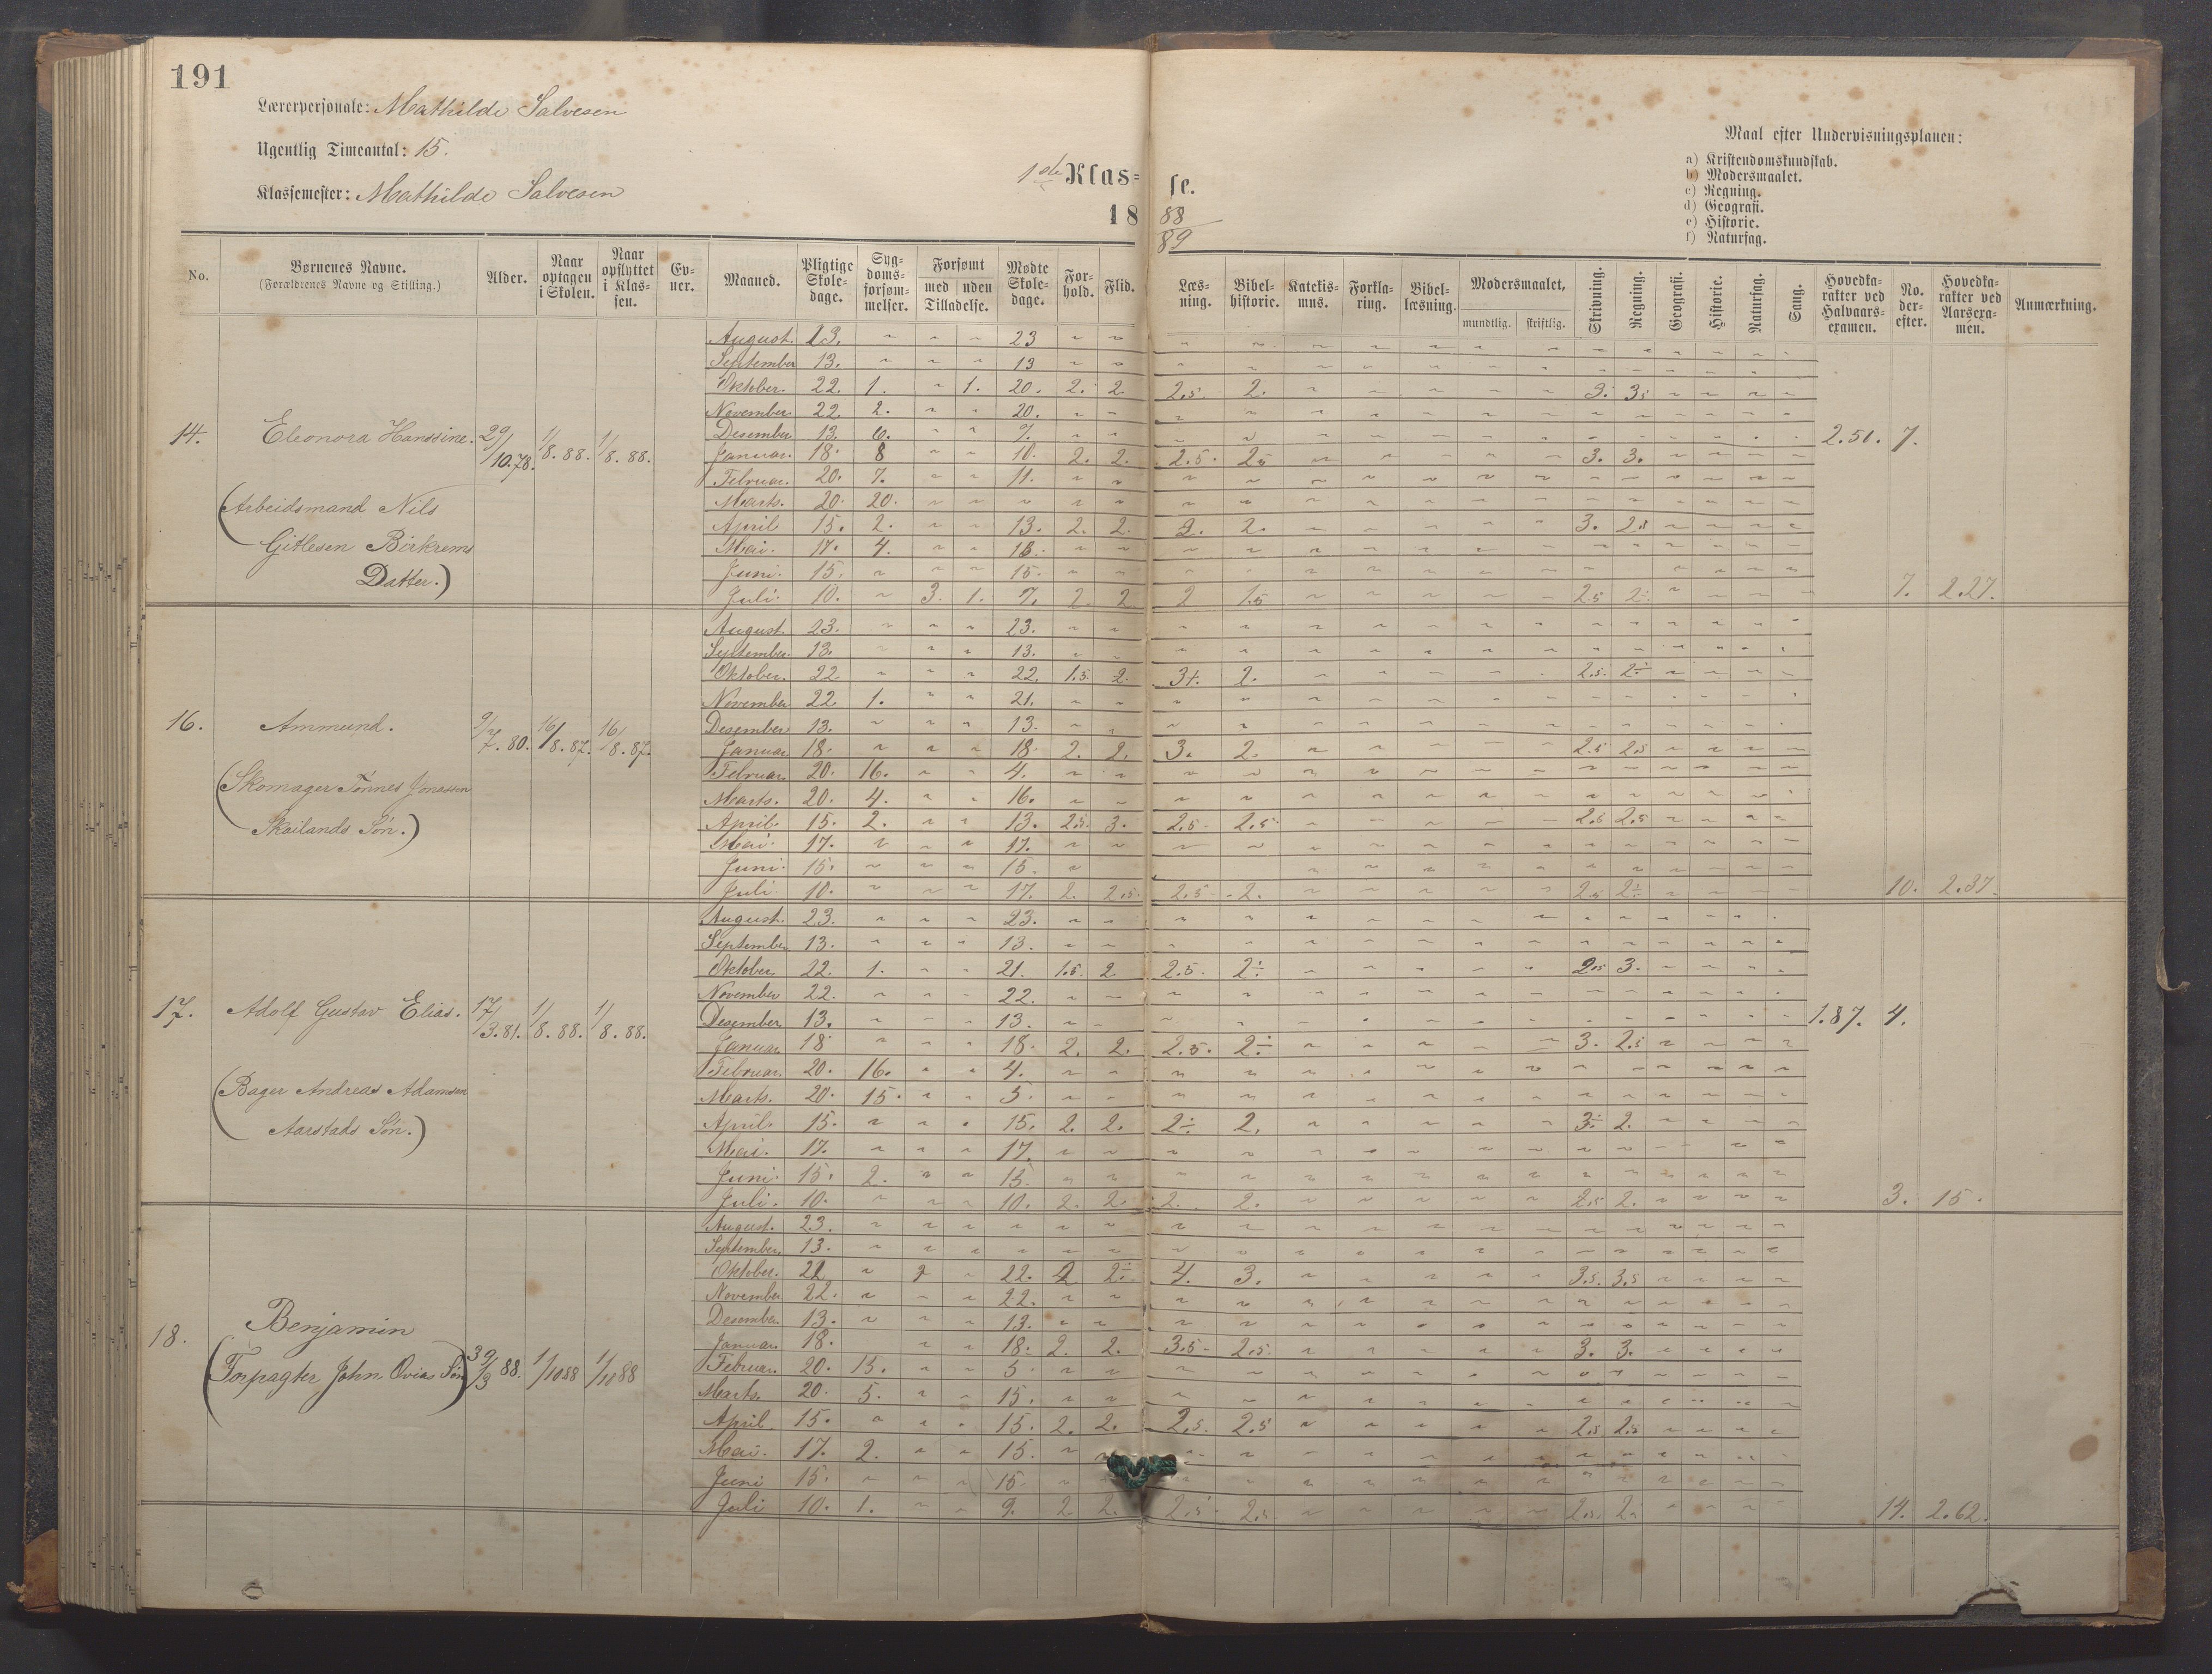 191
Lærerpersonale: Mathilde Salvesen
Ugentlig Timeantal: 15.
Klassemester: Mathilde Salvesen
1ste Klas= se.
18 88/89
Maal efter Undervisningsplanen:
a) Kristendomskundskab.
b) Modersmaalet.
c) Regning.
d) Geografi.
e) Historie.
f) Naturfag.
No. Børnenes Navne. (Forældrenes Navne og Stilling.) Alder. Naar optagen i Skolen. Naar opflyttet i Klassen. Evner. Maaned. Pligtige Skoledage. Sygdomsforsømmelser. Forsømt med uden Tilladelse. Mødte Skoledage. Forhold. Flid. Læsning. Bibelhistorie. Katekismus. Forklaring. Bibellæsning. Modersmaalet, mundtlig. skriftlig. Skrivning. Regning. Geografi. Historie. Naturfag. Sang. Hovedkarakter ved Halvaarsexamen. No. derefter. Hovedkarakter ved Aarsexamen. Anmærkning.
14. Eleonora Hanssine. 29/10.78. 1/8.88. 1/8.88.
(Arbeidsmand Nils
Gitlesen Birkrems
Datter.)
August. 23. 23
September 13. 13
Oktober. 22. 1. 1. 20. 2. 2. 2.5. 2. 3. 3.
November. 22. 2. 20.
Desember 13. 6. 7. 2.50. 7.
Januar. 18. 8 10. 2. 2. 2.5. 2.5 3. 3.
Februar. 20. 7. 11.
Marts. 20. 20.
April 15. 2. 13. 2. 2. 2. 2. 3. 2.5
Mai. 17. 4. 13.
Juni. 15. 15.
Juli. 10. 3. 1. 7. 2. 2 2 1.5 2.5 2. 7. 2.27.
16. Ammund. 9/7.80. 16/8.87. 16/8.87.
(Skomager Tönnes Jonassen
Skailands Sön.)
August. 23. 23.
September. 13. 13.
Oktober. 22. 22. 1.5. 2. 3+. 2. 2.5. 2÷
November 22. 1. 21.
Desember 13. 13.
Januar 18. 18. 2. 2. 3. 2. 2.5 2.5
Februar. 20. 16. 4.
Marts. 20. 4. 16.
April. 15. 2. 13. 2.5. 3. 2.5. 2.5. 2.5 2.5
Mai. 17. 17.
Juni. 15. 15.
Juli. 10. 17. 2. 2.5. 2.5. 2. 2.5 2÷ 10. 2.37.
17. Adolf Gustav Elias. 17/3.81. 1/8.88. 1/8.88.
(Bager Andreas Adamsen
Aarstads Sön.)
August. 23. 23.
September. 13. 13.
Oktober. 22. 1. 21. 1.5. 2 2.5. 2÷ 2.5 3.
November 22. 22.
Desember 13. 13. 1.87. 4.
Januar. 18 18. 2. 2. 2.5. 2÷ 3. 2.5
Februar. 20. 16. 4.
Marts. 20. 15. 5.
April. 15. 15. 2. 2. 2÷ 2. 3÷ 2.
Mai. 17. 17.
Juni. 15. 2. 13.
Juli. 10. 10. 2. 2. 2. 2. 2.5 2. 3. 15.
18. Benjamin
(Forpagter John Ovias Sön) 88. 1/10 88 1/10 88
August. 23.
September. 13.
Oktober. 22 22. 2 2÷ 4. 3. 3.5. 3.5
November 22. 22.
Desember. 13. 13.
Januar. 18. 18. 2. 2. 3.5. 2.5. 3. 3.
Februar. 20. 15. 5
Marts. 20. 5. 15.
April. 15. 15. 2. 2. 2.5. 2.5 2.5 2.5
Mai. 17. 2. 15.
Juni 15. 15.
Juli 10. 1. 9. 2 2. 2.5 2.5 2.5 2. 14. 2.62.